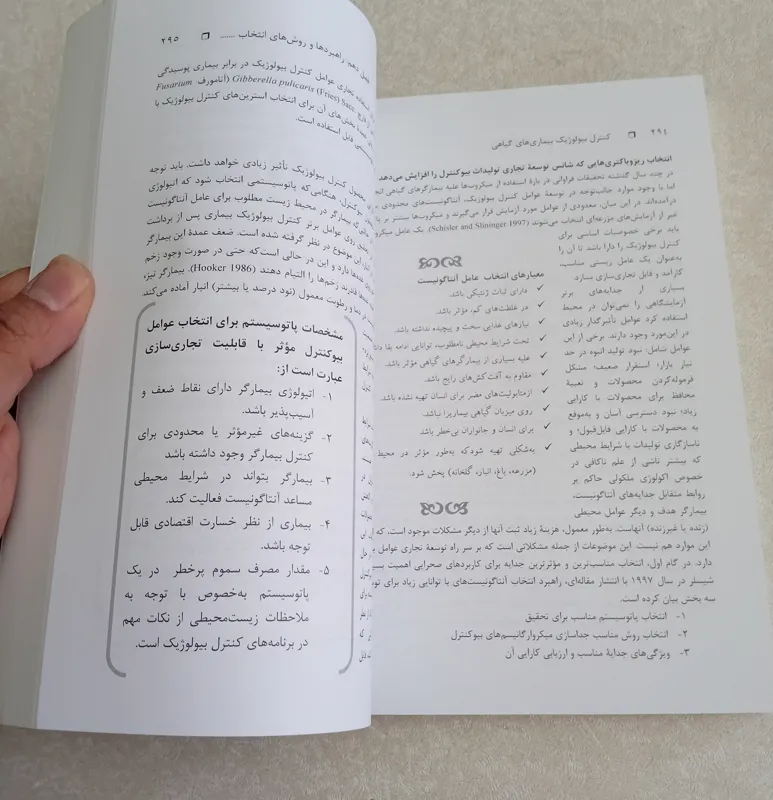 ۲۹٤ کنترل بیولوژیک بیماری‌های گیاهی
انتخاب ریزوباکتری‌هایی که شانس توسعهٔ تجاری تولیدات بیوکنترل را افزایش می‌دهد
در چند سال گذشته تحقیقات فراوانی در بارهٔ استفاده از میکروب‌ها علیه بیمارگرهای گیاهی
اما با وجود موارد جالب‌توجه در توسعهٔ عوامل کنترل بیولوژیک، آنتاگونیست‌های محدودی به
درآمده‌اند. در این میان، معدودی از عوامل مورد آزمایش قرار می‌گیرند و میکروب‌ها بیشتر بر
غیر از آزمایش‌های مزرعه‌ای انتخاب می‌شوند (Schisler and Slininger 1997). یک عامل
باید برخی خصوصیات اساسی برای
کنترل بیولوژیک را دارا باشد تا آن را
به‌عنوان یک عامل زیستی مناسب،
کارآمد و قابل تجاری‌سازی سازد.
بسیاری از جدایه‌های برتر
آزمایشگاهی را نمی‌توان در محیط
استفاده کرد عوامل تأثیرگذار زیادی
در این‌مورد وجود دارند. برخی از این
عوامل شامل: نبود تولید انبوه در حد
نیاز بازار؛ استقرار ضعیف؛ مشکل
فرموله‌کردن محصولات و تعبیهٔ
محافظ برای محصولات با کارایی
زیاد؛ نبود دسترسی آسان و به‌موقع
به محصولات با کارایی قابل‌قبول؛ و
ناسازگاری تولیدات با شرایط محیطی
که بیشتر ناشی از علم ناکافی در
خصوص اکولوژی ملکولی حاکم بر
روابط متقابل جدایه‌های آنتاگونیست،
بیمارگر هدف و دیگر عوامل محیطی
معیارهای انتخاب عامل آنتاگونیست
✓ دارای ثبات ژنتیکی باشد.
✓ در غلظت‌های کم، مؤثر باشد.
✓ نیازهای غذایی سخت و پیچیده نداشته باشد.
✓ تحت شرایط محیطی نامطلوب، توانایی ادامه بقا
✓ علیه بسیاری از بیمارگرهای گیاهی مؤثر باشد.
✓ مقاوم به آفت‌کش‌های رایج باشد.
✓ ازمتابولیت‌های مضر برای انسان تهیه نشده باشد.
✓ روی میزبان گیاهی بیماریزا نباشد.
✓ برای انسان و جانوران بی‌خطر باشد
✓ به‌شکلی تهیه شودکه به‌طور مؤثر در محیط
(مزرعه، باغ، انبار، گلخانه) پخش شود.
(زنده یا غیرزنده) آنهاست. به‌طور معمول، هزینهٔ زیاد ثبت آنها از دیگر مشکلات موجود است. که
این موارد هم نیست. این موضوعات از جمله مشکلاتی است که بر سر راه توسعهٔ تجاری عوامل
دارد. در گام اول، انتخاب مناسب‌ترین و مؤثرترین جدایه برای کاربردهای صحرایی اهمیت
شیسلر در سال ۱۹۹۷ با انتشار مقاله‌ای، راهبرد انتخاب آنتاگونیست‌های با توانایی زیاد برای
سه بخش بیان کرده است.
۱- انتخاب پاتوسیستم مناسب برای تحقیق
۲- انتخاب روش مناسب جداسازی میکروارگانیسم‌های بیوکنترل
۳- ویژگی‌های جدایهٔ مناسب و ارزیابی کارایی آن
فصل دهم: راهبردها و روش‌های انتخاب ....... ۲۹۵
استفاده تجاری عوامل کنترل بیولوژیک در برابر بیماری پوسیدگی
Gibberella pulicaris (Fries) Sacc. (آنامورف: Fusarium
بخش‌های آن برای انتخاب استرین‌های کنترل بیولوژیک با
قابل استفاده است.
محصول کنترل بیولوژیک تأثیر زیادی خواهد داشت. باید توجه
بیوکنترل، هنگامی‌که پاتوسیستمی انتخاب شود که اتیولوژی
که بیمارگر در محیط زیست مطلوب برای عامل آنتاگونیست
روی عوامل برتر کنترل بیولوژیک بیماری پس از برداشت
این موضوع در نظر گرفته شده است. ضعف عمدهٔ این بیمارگر
دارد و این در حالی است‌که حتی در صورت وجود زخم
قادرند زخم‌ها را التیام دهند (Hooker 1986). بیمارگر نیز،
و رطوبت معمول (نود درصد یا بیشتر) انبار آماده می‌کند.
مشخصات پاتوسیستم برای انتخاب عوامل
بیوکنترل مؤثر با قابلیت تجاری‌سازی
عبارت است از:
۱- اتیولوژی بیمارگر دارای نقاط ضعف و
آسیب‌پذیر باشد.
۲- گزینه‌های غیرمؤثر یا محدودی برای
کنترل بیمارگر وجود داشته باشد
۳- بیمارگر بتواند در شرایط محیطی
مساعد آنتاگونیست فعالیت کند.
۴- بیماری از نظر خسارت اقتصادی قابل
توجه باشد.
۵- مقدار مصرف سموم پرخطر در یک
پاتوسیستم به‌خصوص با توجه به
ملاحظات زیست‌محیطی از نکات مهم
در برنامه‌های کنترل بیولوژیک است.